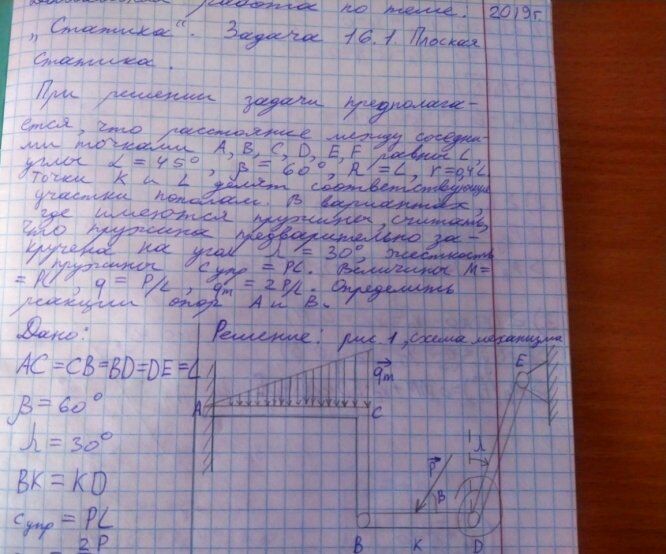 работа по теме. 2019г
„Статика“. Задача 16.1. Плоская
статика.
При решении задачи предполага-
ется, что расстояние между соседни-
ми точками A, B, C, D, E, F равны L,
углы α = 45°, β = 60°, R = L, r = 0,4L.
Точки K и L делят соответствующие
участки пополам. В вариантах,
где имеются пружины, считать,
что пружина предварительно за-
кручена на угол λ = 30°, жесткость
пружины Cупр = PL. Величины M =
= PL, q = P/L, qm = 2P/L. Определить
реакции опор A и B.
Дано: Решение: рис. 1, схема механизма
AC = CB = BD = DE = L
β = 60°
λ = 30°
BK = KD
Cупр = PL
2P
A
C
qm
E
λ
P
β
B
K
D